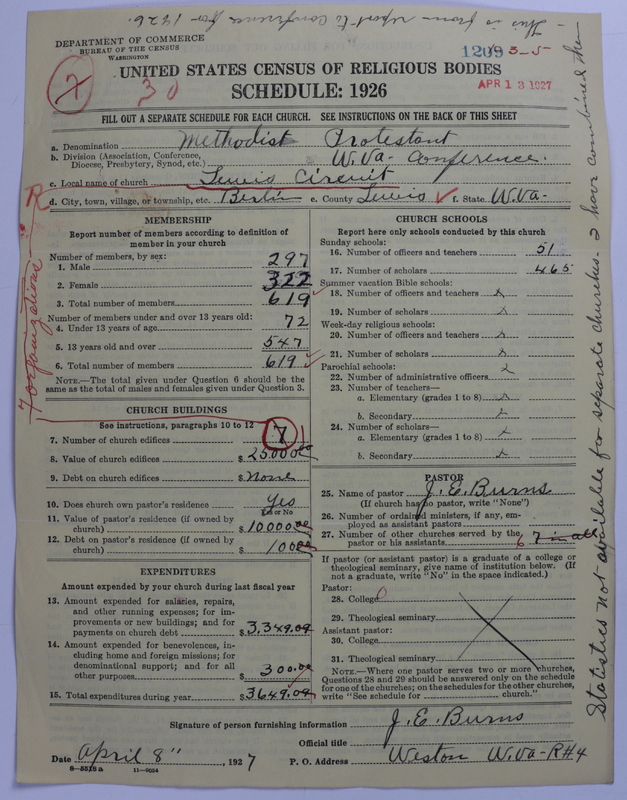 - This is from report to Conference for 1926.
DEPARTMENT OF COMMERCE
BUREAU OF THE CENSUS
WASHINGTON
1209 3-5
APR 13 1927
30
UNITED STATES CENSUS OF RELIGIOUS BODIES
SCHEDULE: 1926
FILL OUT A SEPARATE SCHEDULE FOR EACH CHURCH. SEE INSTRUCTIONS ON THE BACK OF THIS SHEET
a. Denomination Methodist Protestant
b. Division (Association, Conference, Diocese, Presbytery, Synod, etc.) W.Va- Conference.
c. Local name of church Lewis Circuit
d. City, town, village, or township, etc. Berlin e. County Lewis f. State W.Va-
R
7 organizations
MEMBERSHIP
Report number of members according to definition of
member in your church
Number of members, by sex:
1. Male 297
2. Female 322
3. Total number of members 619
Number of members under and over 13 years old:
4. Under 13 years of age 72
5. 13 years old and over 547
6. Total number of members 619
NOTE.—The total given under Question 6 should be the
same as the total of males and females given under Question 3.
CHURCH BUILDINGS
See instructions, paragraphs 10 to 12
7. Number of church edifices 7
8. Value of church edifices $ 25000.00
9. Debt on church edifices $ None
10. Does church own pastor's residence Yes
Yes or No
11. Value of pastor's residence (if owned by
church) $ 10000.00
12. Debt on pastor's residence (if owned by
church) $ 100.00
EXPENDITURES
Amount expended by your church during last fiscal year
13. Amount expended for salaries, repairs,
and other running expenses; for im-
provements or new buildings; and for
payments on church debt $ 3,349.09
14. Amount expended for benevolences, in-
cluding home and foreign missions; for
denominational support; and for all
other purposes $ 300.00
15. Total expenditures during year $ 3649.09
CHURCH SCHOOLS
Report here only schools conducted by this church
Sunday schools:
16. Number of officers and teachers 51
17. Number of scholars 465
Summer vacation Bible schools:
18. Number of officers and teachers x
19. Number of scholars x
Week-day religious schools:
20. Number of officers and teachers x
21. Number of scholars x
Parochial schools:
22. Number of administrative officers x
23. Number of teachers—
a. Elementary (grades 1 to 8) x
b. Secondary x
24. Number of scholars—
a. Elementary (grades 1 to 8) x
b. Secondary x
PASTOR
25. Name of pastor J. E. Burns
(If church has no pastor, write "None")
26. Number of ordained ministers, if any, em-
ployed as assistant pastors
27. Number of other churches served by the
pastor or his assistants 6 7 in all
If pastor (or assistant pastor) is a graduate of a college or
theological seminary, give name of institution below. (If
not a graduate, write "No" in the space indicated.)
Pastor:
28. College
29. Theological seminary
Assistant pastor:
30. College
31. Theological seminary
NOTE.—Where one pastor serves two or more churches,
Questions 28 and 29 should be answered only on the schedule
for one of the churches; on the schedules for the other churches,
write "See schedule for church."
Statistics not available for separate churches. I have combined the
Signature of person furnishing information J. E. Burns
Official title
Date April 8" , 1927 P. O. Address Weston W.Va-R#4
8—5518 a 11—9054